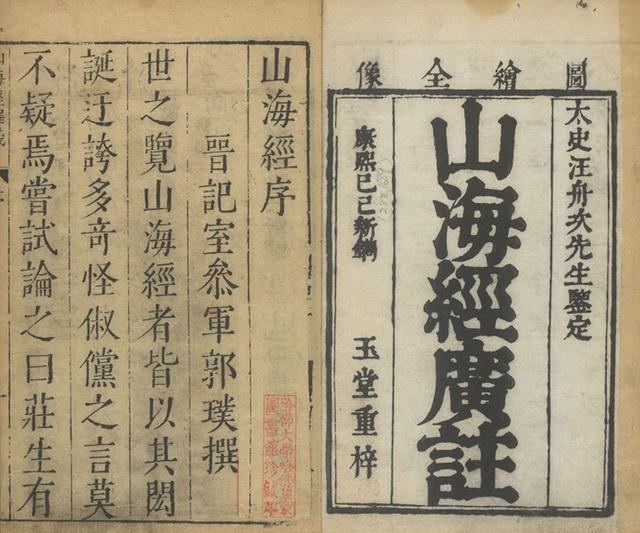 圖繪全像
太史汪舟次先生鑒定
山海經廣註
康熙己巳新鐫
玉堂重梓
山海經序
晉記室叅軍郭璞撰
世之覽山海經者皆以其閎
誕迂誇多奇怪俶儻之言莫
不疑焉嘗試論之曰莊生有
哈佛大學哈佛燕京
圖書館珍藏印